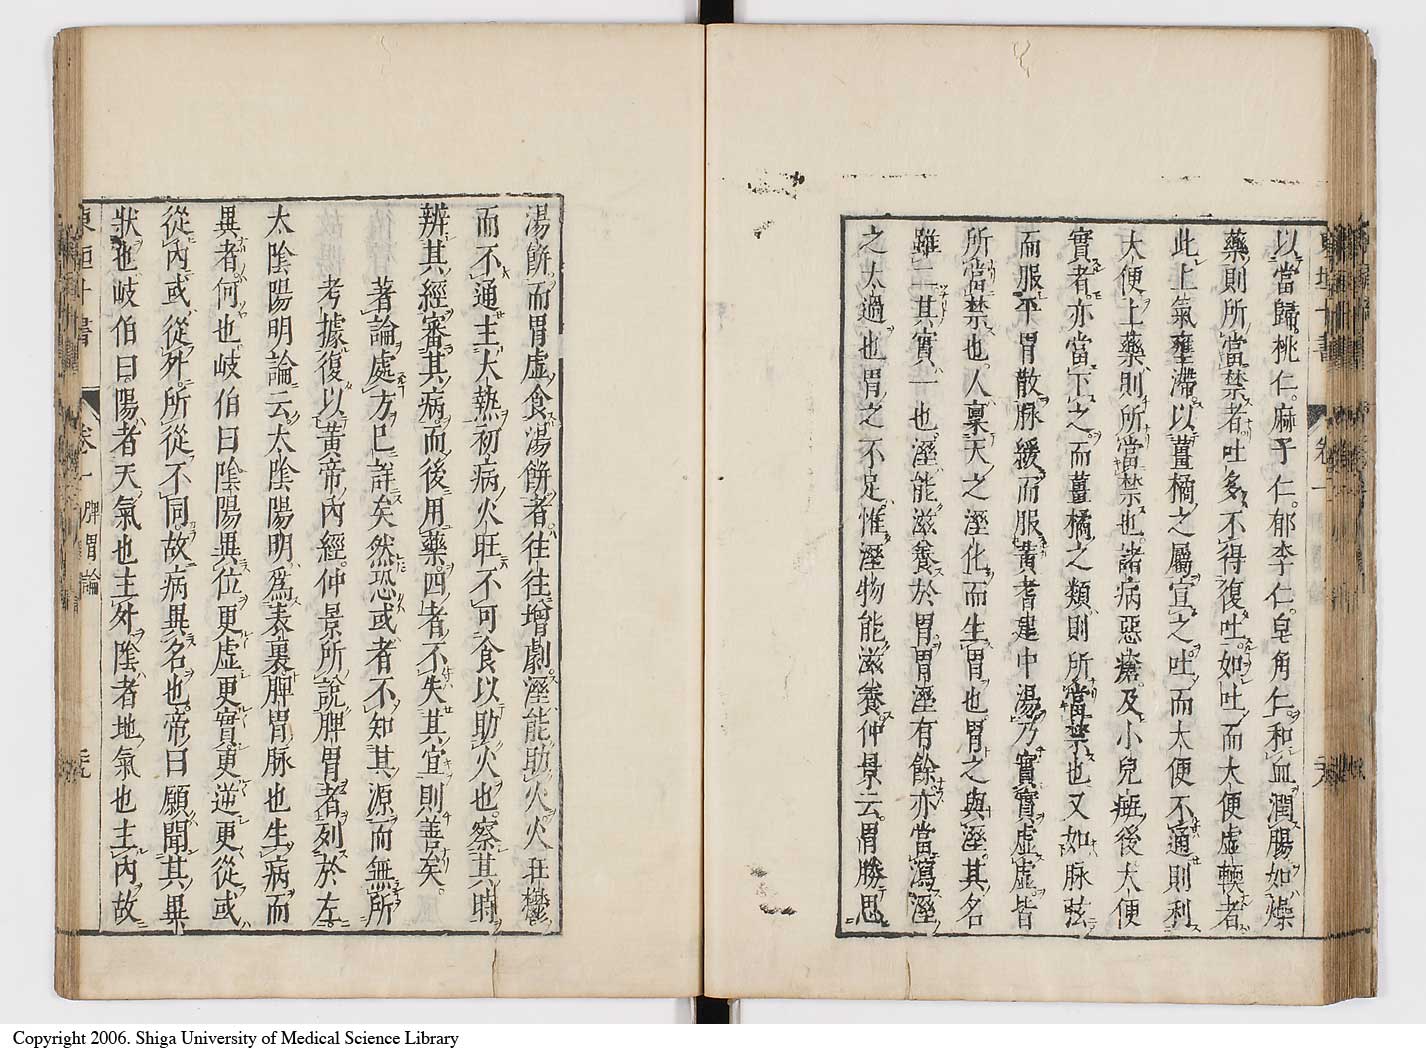 以當歸桃仁麻子仁郁李仁皂角仁和血潤腸如燥
藥則所當禁者吐多不得復吐如吐而大便虛軟者
此上氣壅滯以薑橘之屬宣之吐而大便不通則利
大便上藥則所當禁也諸病惡瘡及小兒癍後大便
實者亦當下之而薑橘之類則所當禁也又如脉弦
而服平胃散脉緩而服黃耆建中湯乃實實虛虛皆
所當禁也人稟天之溼化而生胃也胃之與溼其名
雖二其實一也溼能滋養於胃胃溼有餘亦當瀉溼
之太過也胃之不足惟溼物能滋養仲景云胃勝思
湯餅而胃虛食湯餅者往往增劇溼能助火火旺鬱
而不通主大熱初病火旺不可食以助火也察其時
辨其經審其病而後用藥四者不失其宜則善矣
著論處方已詳矣然恐或者不知其源而無所
考據復以黃帝內經仲景所說脾胃者列於左
太陰陽明論云太陰陽明爲表裏脾胃脉也生病而
異者何也岐伯曰陰陽異位更虛更實更逆更從或
從內或從外所從不同故病異名也帝曰願聞其異
狀也岐伯曰陽者天氣也主外陰者地氣也主內故
東垣十書 卷一 脾胃論